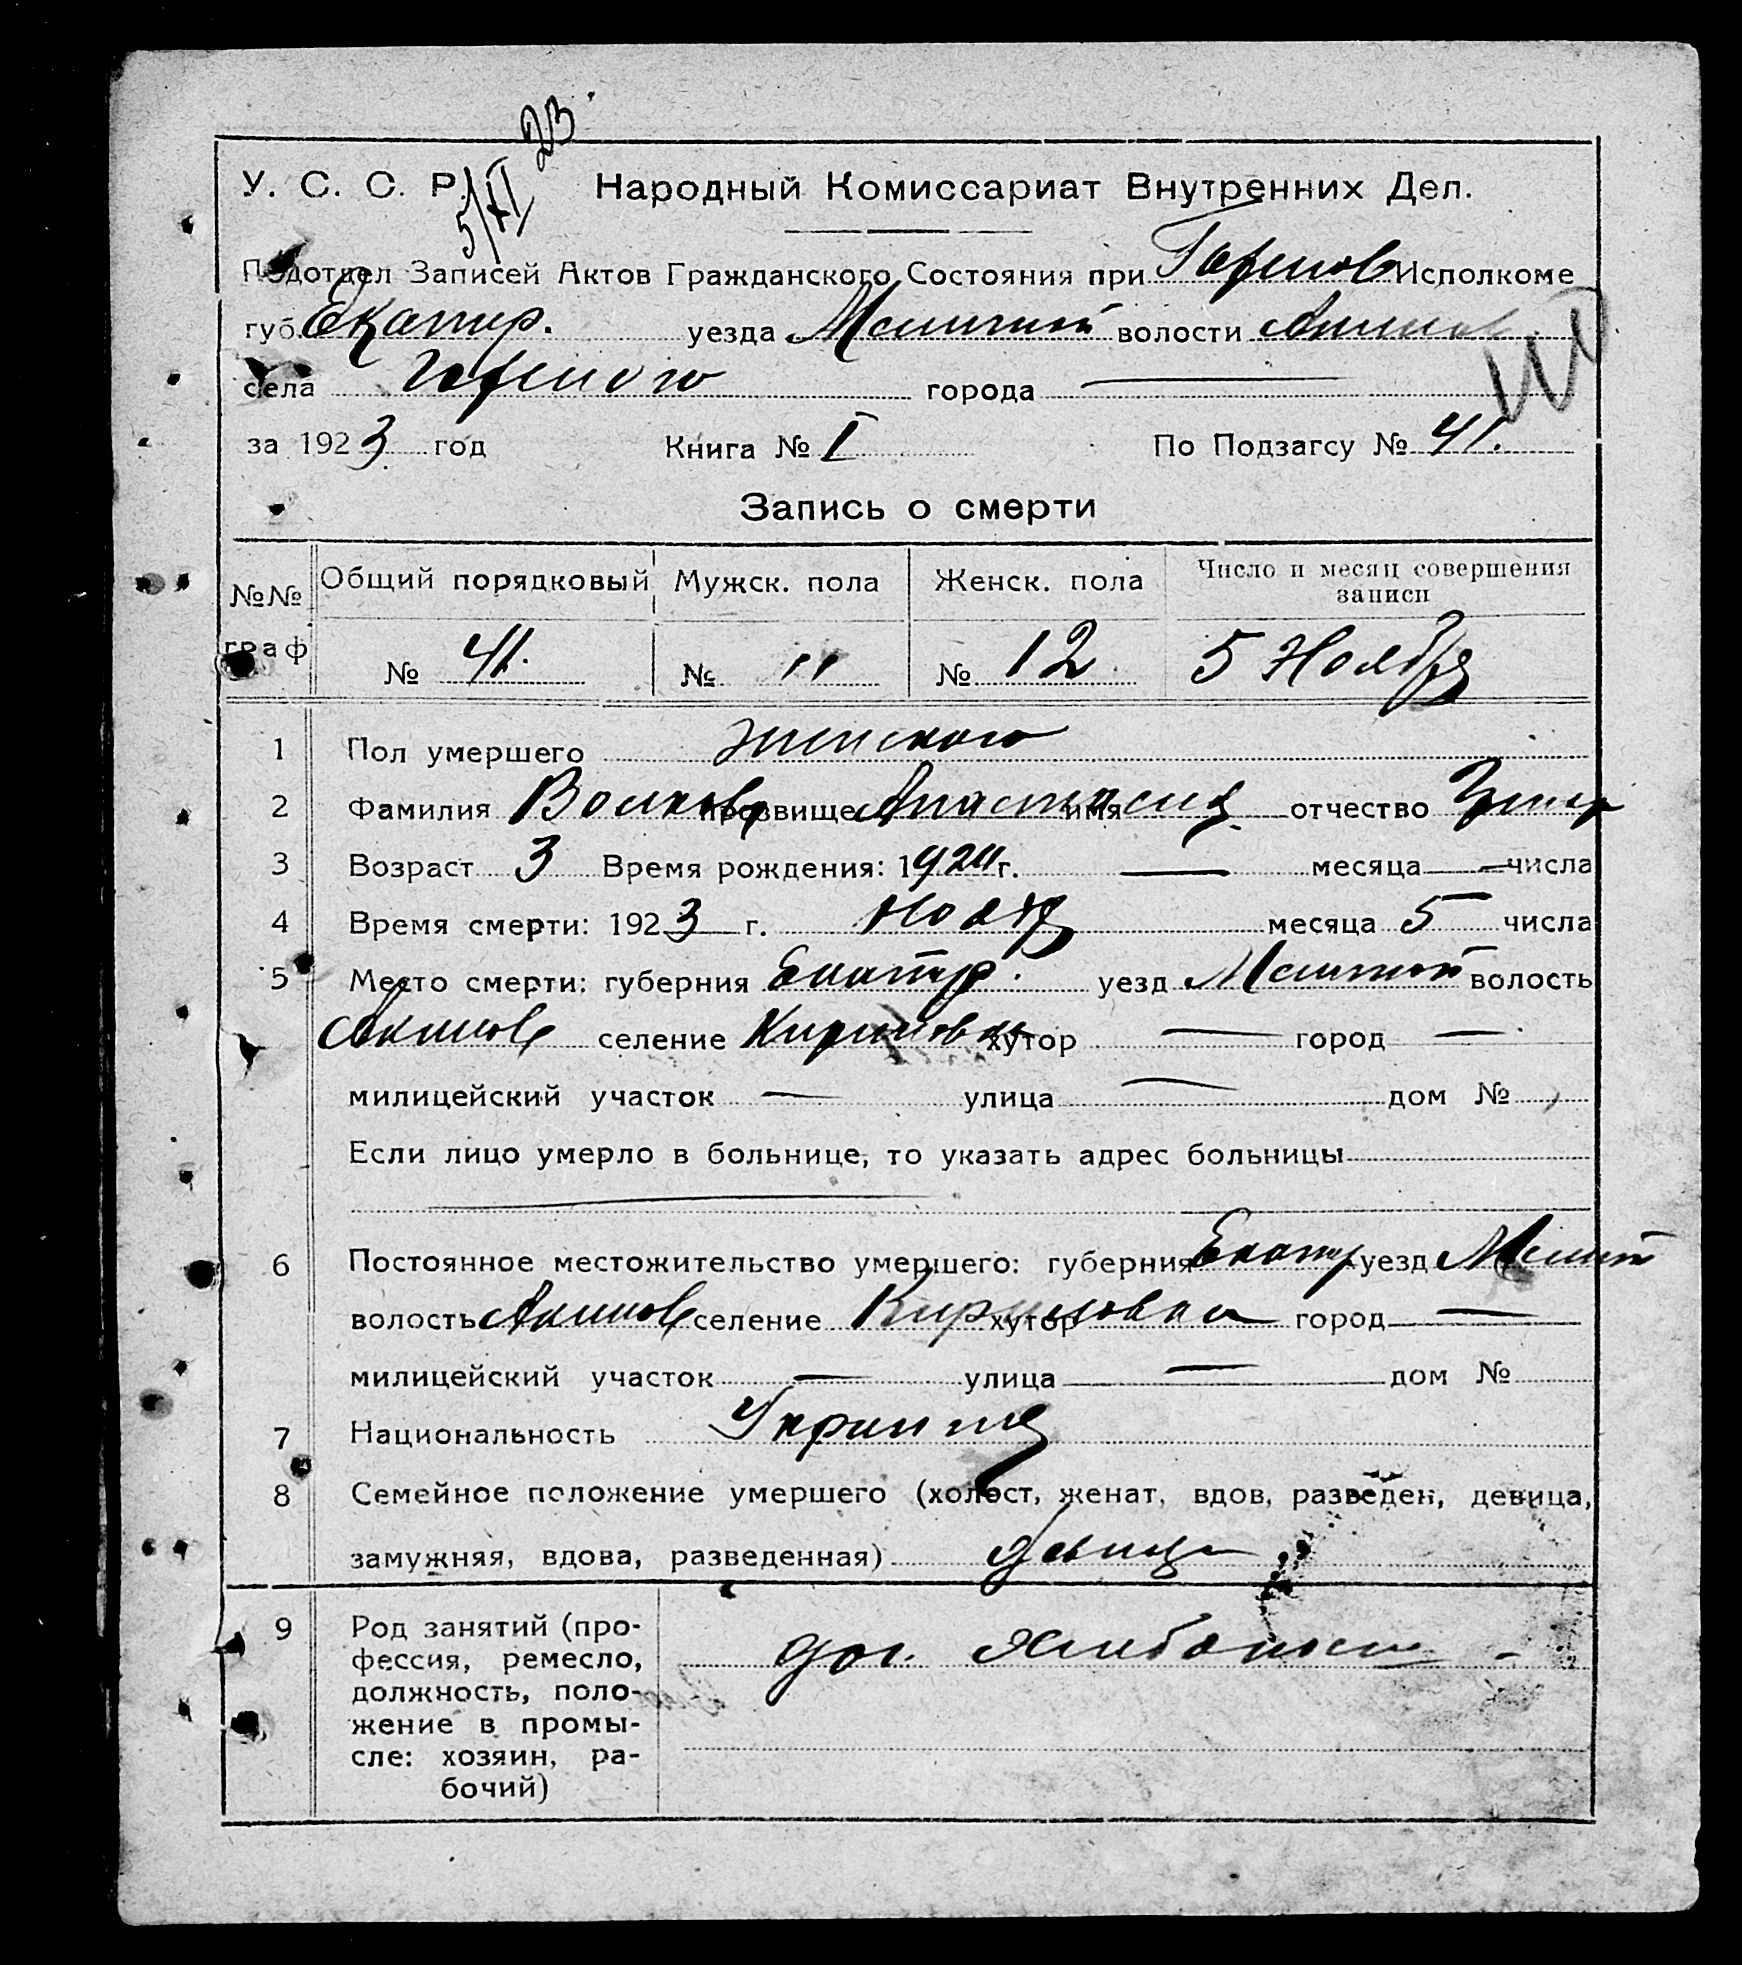 5/XI 23
У. С. С. Р. Народный Комиссариат Внутренних Дел.
Подотдел Записей Актов Гражданского Состояния при Исполкоме
губ. Екатер. уезда волости
села города —
за 1923 год Книга № I По Подзагсу № 41.
Запись о смерти
№№ граф Общий порядковый Мужск. пола Женск. пола Число и месяц совершения записи
№ 41. № " № 12 5 Ноября
1 Пол умершего женского
2 Фамилия Волкова прозвище Анастасия имя отчество
3 Возраст 3 Время рождения: 1920 г. — месяца — числа
4 Время смерти: 1923 г. Нояб месяца 5 числа
5 Место смерти: губерния Екатер. уезд волость
Акимов селение Кириловка хутор — город —
милицейский участок — улица — дом №
Если лицо умерло в больнице, то указать адрес больницы
—
6 Постоянное местожительство умершего: губерния Екатер уезд Мелит
волость Акимов селение Кириловка хутор город —
милицейский участок — улица — дом №
7 Национальность
8 Семейное положение умершего (холост, женат, вдов, разведен, девица,
замужняя, вдова, разведенная) девица
9 Род занятий (про-
фессия, ремесло,
должность, поло-
жение в промы-
сле: хозяин, ра-
бочий)
доч.